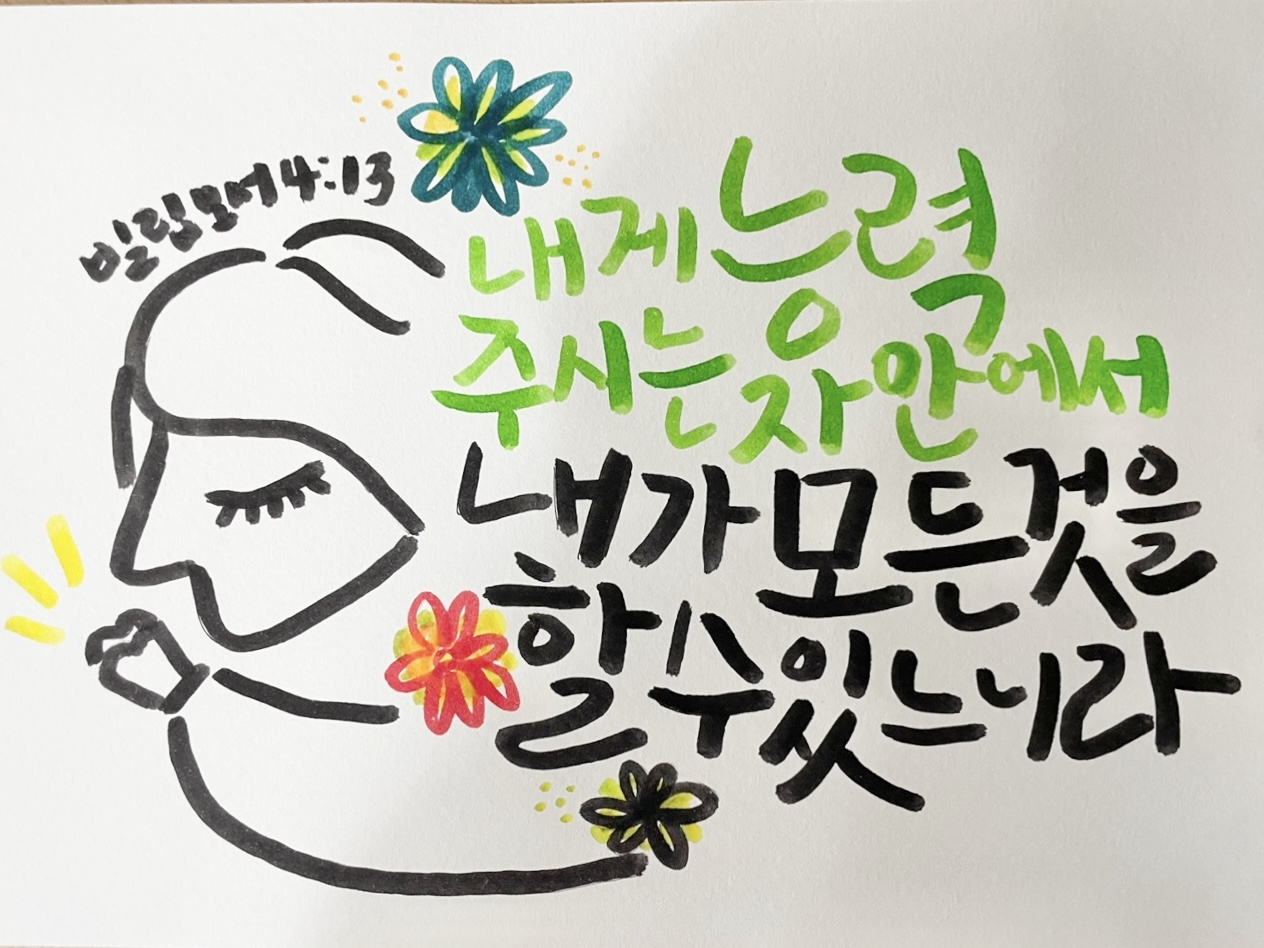 빌립보서 4:13
내게 능력
주시는 자 안에서
내가 모든것을
할 수 있느니라